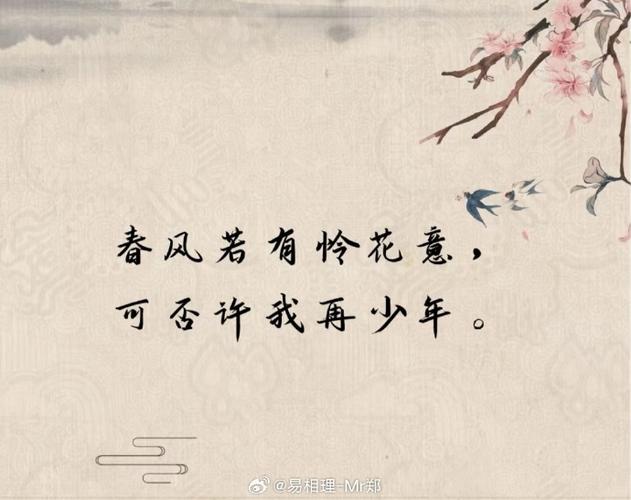 春风若有怜花意，
可否许我再少年。
@易相理-Mr郑